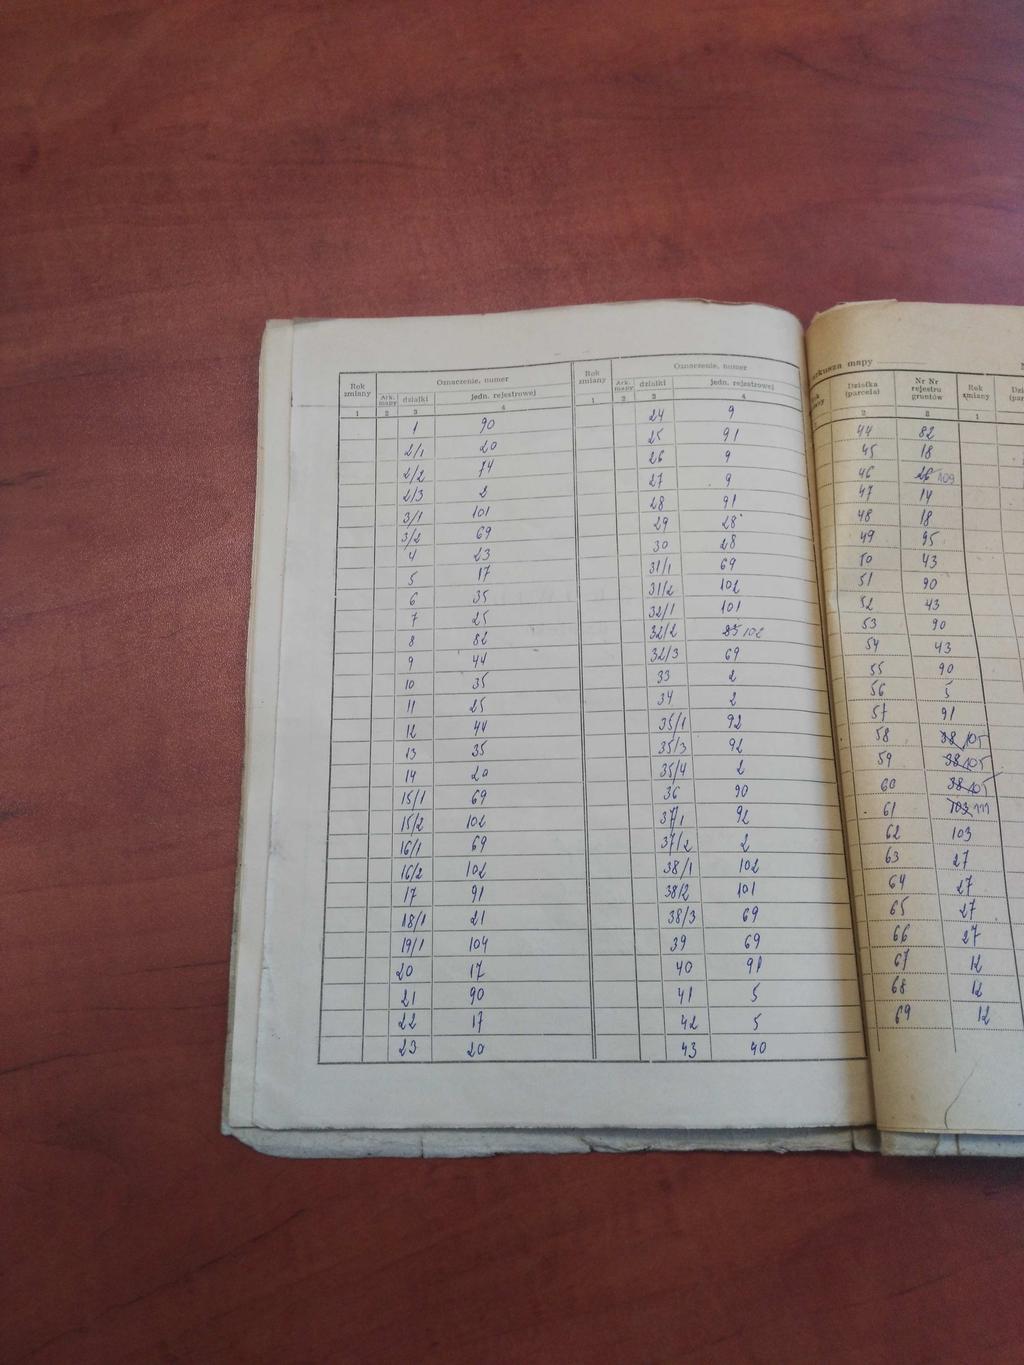 Rok zmiany
Oznaczenie, numer
Ark. mapy
działki
jedn. rejestrowej
1 2 3 4
1 90
2/1 20
2/2 74
2/3 2
3/1 101
3/2 69
4 23
5 17
6 35
7 25
8 82
9 44
10 35
11 25
12 44
13 35
14 20
15/1 69
15/2 102
16/1 69
16/2 102
17 91
18/1 21
19/1 104
20 17
21 90
22 17
23 20
Rok zmiany
Oznaczenie, numer
Ark. mapy
działki
jedn. rejestrowej
1 2 3 4
24 9
25 91
26 9
27 9
28 91
29 28
30 28
31/1 69
31/2 102
32/1 101
32/2 85 102
32/3 69
33 2
34 2
35/1 92
35/3 92
35/4 2
36 90
37/1 92
37/2 2
38/1 102
38/2 101
38/3 69
39 69
40 91
41 5
42 5
43 40
mapy
Działka (parcela)
Nr Nr rejestru gruntów
Rok zmiany
2 3 1
44 82
45 18
46 26 109
47 14
48 18
49 95
50 43
51 90
52 43
53 90
54 43
55 90
56 5
57 91
58 38 105
59 38 105
60 38 105
61 103 111
62 103
63 27
64 27
65 27
66 27
67 12
68 12
69 12